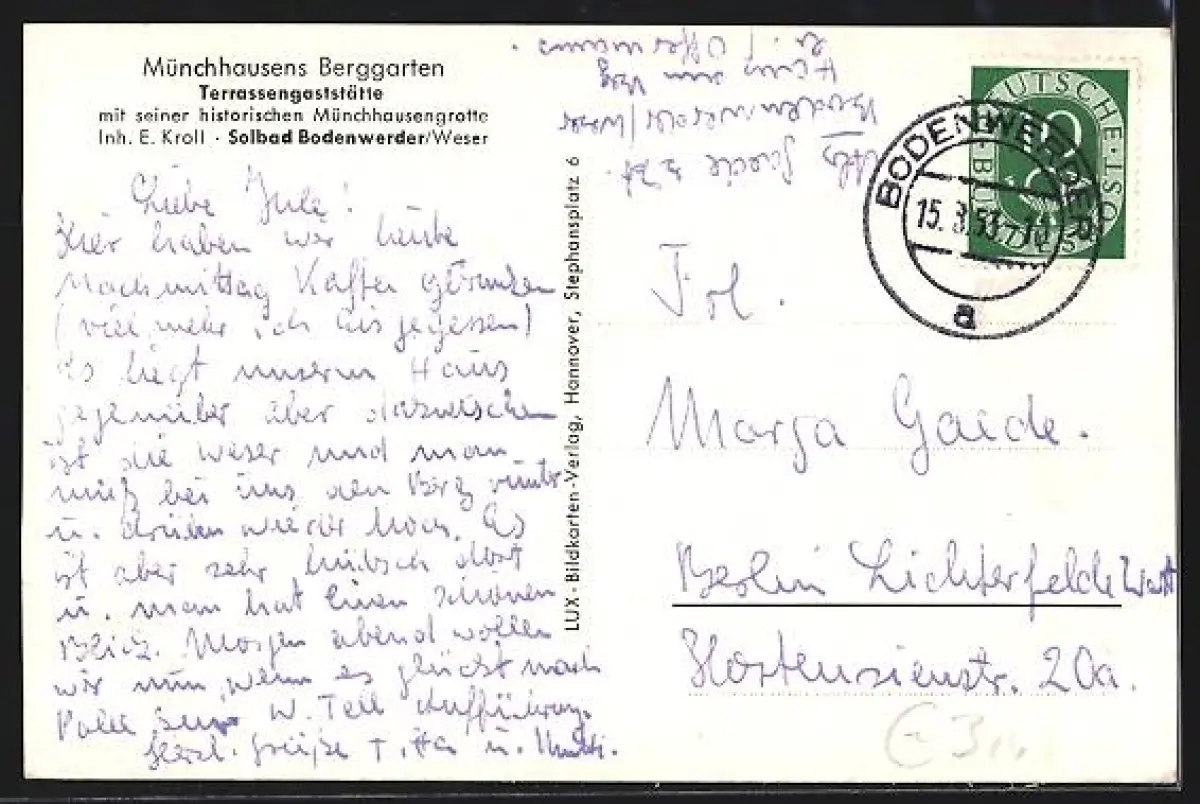 Münchhausens Berggarten
Terrassengaststätte
mit seiner historischen Münchhausengrotte
Inh. E. Kroll · Solbad Bodenwerder/Weser
Liebe Jule!
Hier haben wir heute
Nachmittag Kaffee getrunken
(viel mehr ich Eis gegessen)
Es liegt unserm Haus
gegenüber aber dazwischen
ist die Weser und man
muß bei uns den Berg runter
u. drüben wieder hoch. Es
ist aber sehr hübsch dort
u. man hat einen schönen
Blick. Morgen abend wollen
wir nun, wenn es glückt nach
Polle zur W. Tell Aufführung.
Herzl. Grüße u. Mutti.
LUX-Bildkarten-Verlag, Hannover, Stephansplatz 6
Gaede z. Zt.
Bodenwerder/Weser
Haus am
b. Offermann
DEUTSCHE BUNDESPOST
10
BODENWERDER
15.8.53
a
Frl.
Marga Gaede.
Berlin Lichterfelde West
Hortensienstr. 20a.